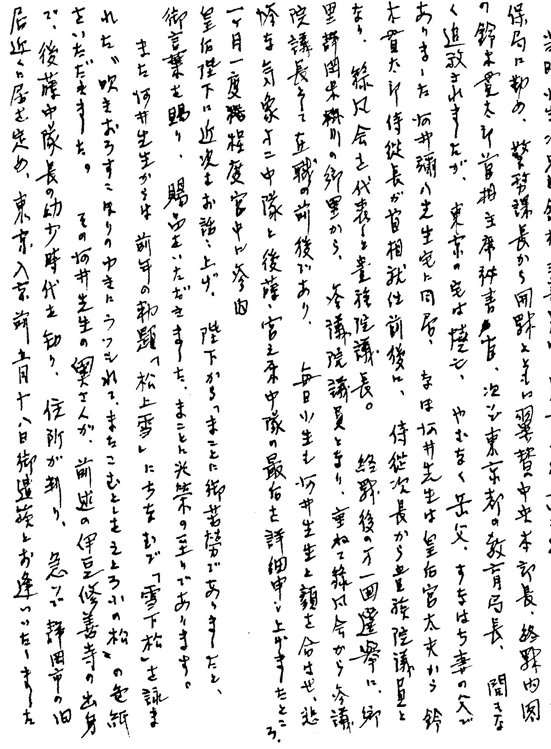 保局に勤め、警務課長から開戦とともに翼賛中央本部長、終戦内閣
の鈴木貫太郎首相主席秘書官、次で東京都の教育局長、間もな
く追放されましたが、東京の宅は焼え、やむなく岳父、すなはち妻の父で
ありました河井彌八先生宅に同居、なほ河井先生は皇后宮太夫から鈴
木貫太郎侍従長が首相就任前後に、侍従次長から貴族院議員と
なり、緑風会を代表し貴族院議長。終戦後の第一回選挙に、郷
里静岡県掛川の郷里から、参議院議員となり、重ねて緑風会から参議
院議長として在職の前後であり、毎日小生も河井先生と顔を合はせ、悲
惨な気象十二中隊と後藤、宮之原中隊の最后を詳細申し上げましたところ、
一ヶ月一度程度宮中に参内
皇后陛下に近次をお話し上げ、陛下から「まことに御苦労でありました」と、
御言葉を賜り、賜品をいただきました。まことに光栄の至りであります。
また河井先生からは前年の勅題「松上雪」にちなむで「雪下松」を詠ま
れた「吹きおろすこほりのゆきにうづもれてまたこむとしをまころ小の松」の色紙
をいただきました。その河井先生の奥さんが、前述の伊豆修善寺の出身
で、後藤中隊長の幼少時代を知り、住所が判り、急いで静岡市の旧
居近くに居を定め、東京入京前五月十八日御遺族とお逢いいたしました